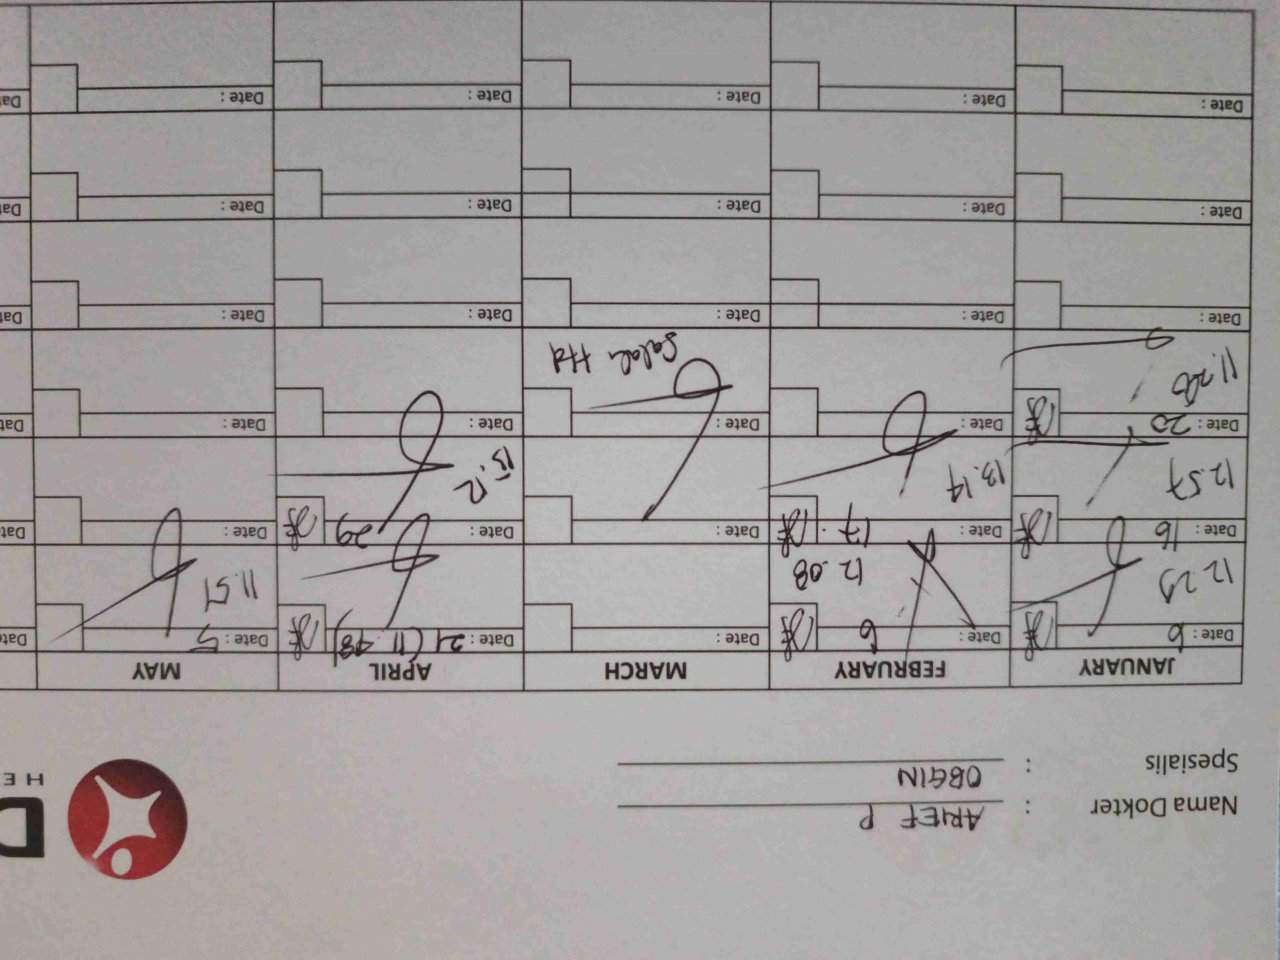 D
HE
Nama Dokter : ARIEF P
Spesialis : OBGIN
JANUARY FEBRUARY MARCH APRIL MAY
Date : 6 Date : 6 Date : Date : 21 (11.48) Date : 5 Date
12.29 12.08 11.51
Date : 16 Date : 17 Date : Date : 29 Date : Date
12.57 13.14 13.12
Date : 20 Date : Date : Date : Date : Date
11.20 Salah ttd
Date : Date : Date : Date : Date : Date
Date : Date : Date : Date : Date : Date
Date : Date : Date : Date : Date : Date